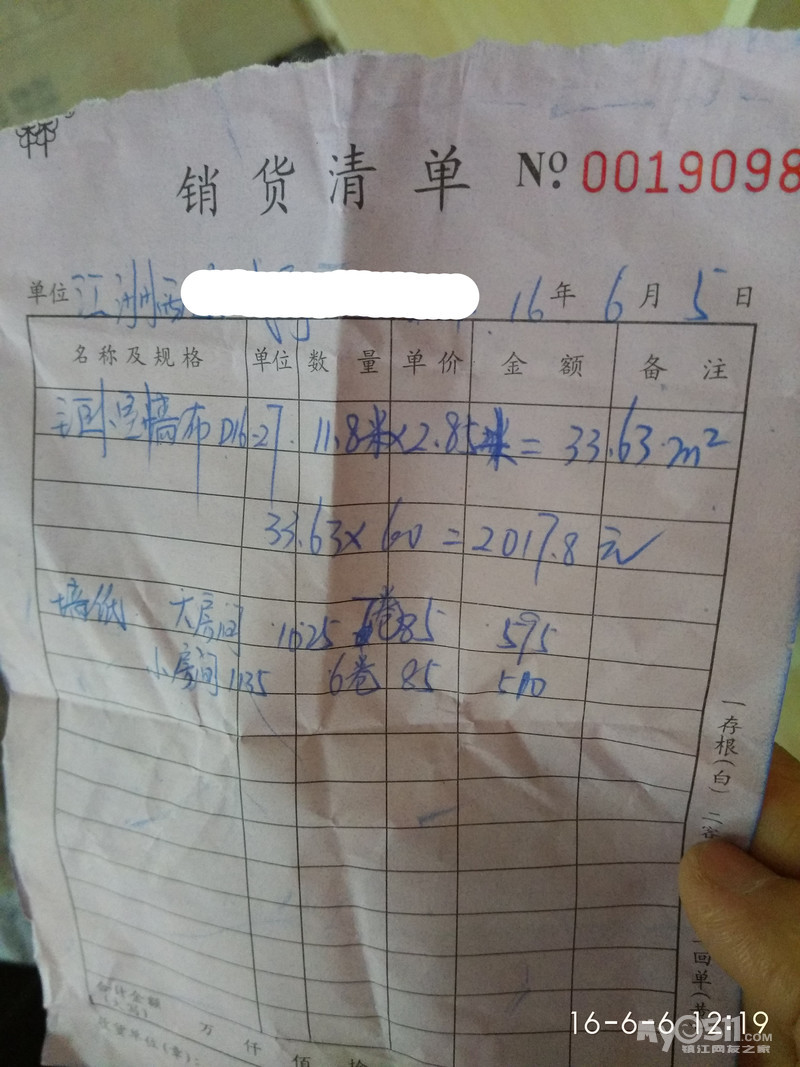 销货清单 No. 0019098
单位 江洲 16年6月5日
名称及规格 单位 数量 单价 金额 备注
墙布 D16-27 11.8米×2.85米=33.63m²
33.63×60=2017.8元
墙纸 大房间 1025 7卷 85 595
小房间 1135 6卷 85 510
一存根(白) 二客
回单(
合计金额
(大写)
万 仟 佰 拾
收货单位(章):
16-6-6 12:19
my0511.com
镇江网友之家